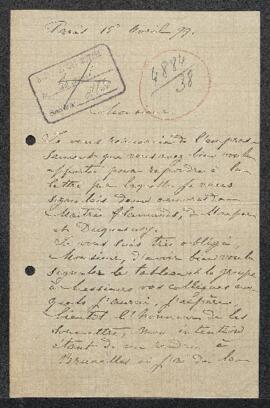 Paris 15 Avril 99.
4884
38
Monsieur
Je vous remercie de l'empres-
sement que vous avez bien voulu
apporter pour répondre à la
lettre par laquelle je vous
signalais
Maîtres flamands, de
et Duquesnoy.
Je vous suis très obligé,
Monsieur, d'avoir bien voulu
signaler le tableau et le groupe
à Messieurs vos collègues aux-
quels j'aurai, j'espère,
bientôt l'honneur de les
soumettre, mon intention
étant de me rendre à
Bruxelles où j'ai de la